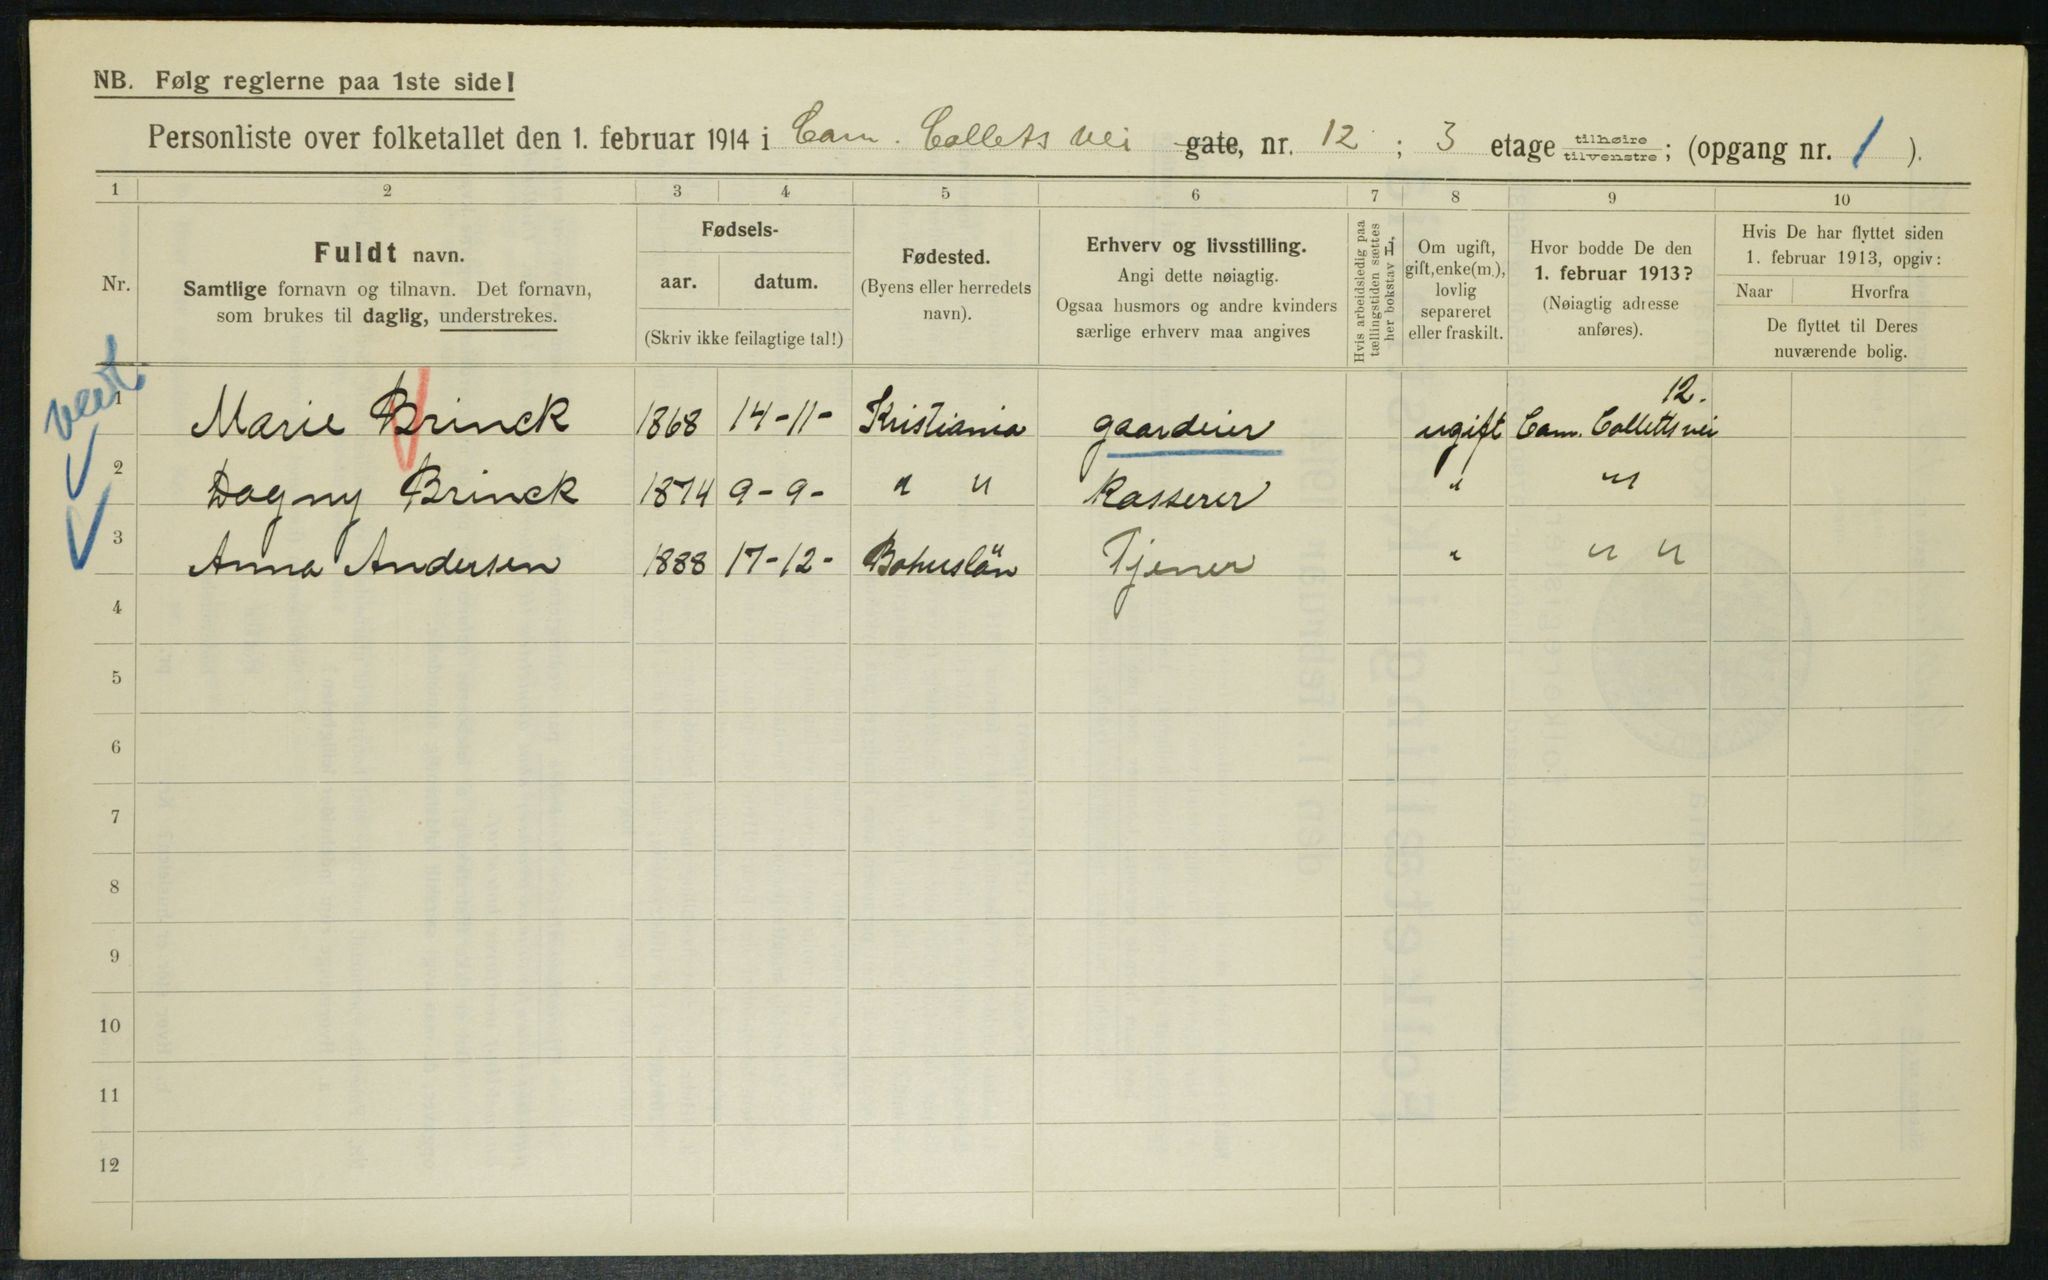 NB. Følg reglerne paa 1ste side!
Personliste over folketallet den 1. februar 1914 i Cam. Collets vei gate, nr. 12 ; 3 etage tilhøire tilvenstre; (opgang nr. 1 ).
1 2 3 4 5 6 7 8 9 10
Nr.
Fuldt navn.
Samtlige fornavn og tilnavn. Det fornavn,
som brukes til daglig, understrekes.
Fødsels-
aar. datum.
(Skriv ikke feilagtige tal!)
Fødested.
(Byens eller herredets
navn).
Erhverv og livsstilling.
Angi dette nøiagtig.
Ogsaa husmors og andre kvinders
særlige erhverv maa angives
Hvis arbeidsledig paa
tællingstiden sættes
her bokstav L.
Om ugift,
gift, enke(m.),
lovlig
separeret
eller fraskilt.
Hvor bodde De den
1. februar 1913?
(Nøiagtig adresse
anføres).
Hvis De har flyttet siden
1. februar 1913, opgiv:
Naar Hvorfra
De flyttet til Deres
nuværende bolig.
12.
1 Marie Brinck 1868 14-11- Kristiania gaardeier ugift Cam. Colletts vei
2 Dagny Brinck 1874 9-9- " " Kasserer " "
3 Anna Andersen 1888 17-12- Bohuslän Tjener " " "
4
5
6
7
8
9
10
11
12